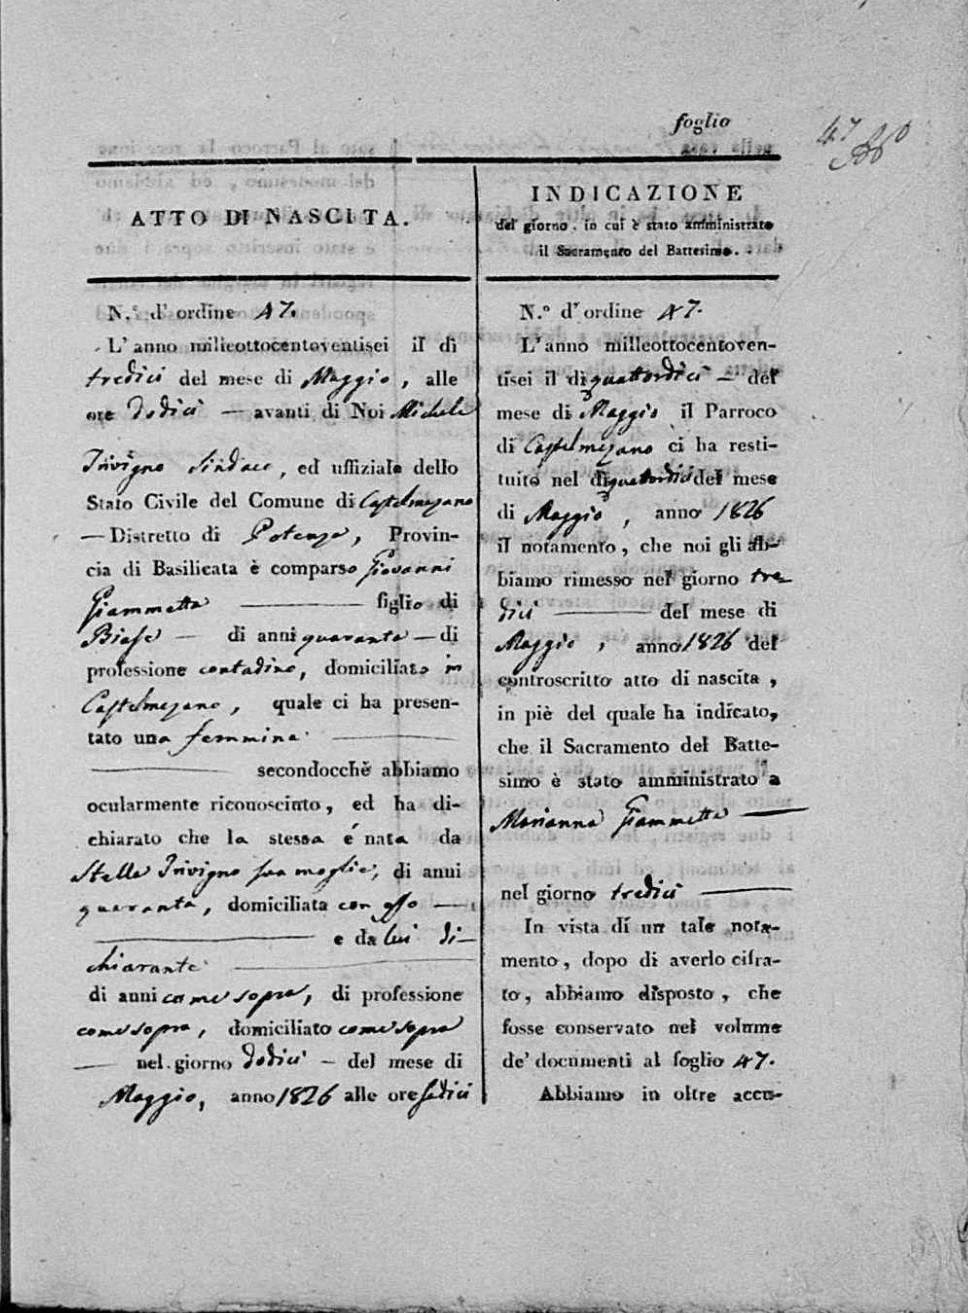 foglio
47
ATTO DI NASCITA.
N.° d'ordine 47.
L'anno milleottocentoventisei il dì
tredici del mese di Maggio, alle
ore dodici — avanti di Noi Michele
Trivigno Sindaco, ed uffiziale dello
Stato Civile del Comune di Castelmezano
— Distretto di Potenza, Provin-
cia di Basilicata è comparso Giovanni
Giammetta — figlio di
Biase — di anni quaranta — di
professione contadino, domiciliato in
Castelmezano, quale ci ha presen-
tato una femmina —
— secondocchè abbiamo
ocularmente riconoscinto, ed ha di-
chiarato che la stessa é nata da
Stella Trivigno sua moglie, di anni
quaranta, domiciliata con esso —
— e da lui di-
chiarante —
di anni come sopra, di professione
come sopra, domiciliato come sopra
— nel giorno dodici — del mese di
Maggio, anno 1826 alle ore sedici
INDICAZIONE
del giorno, in cui è stato amministrato
il Sacramento del Battesimo.
N.° d'ordine 47.
L'anno milleottocentoven-
tisei il dì quattordici — del
mese di Maggio il Parroco
di Castelmezano ci ha resti-
tuito nel dì quattordici del mese
di Maggio, anno 1826
il notamento, che noi gli ab-
biamo rimesso nel giorno tre-
dici — del mese di
Maggio, anno 1826 del
controscritto atto di nascita,
in piè del quale ha indicato,
che il Sacramento del Batte-
simo è stato amministrato a
Marianna Giammetta —
nel giorno tredici —
In vista di un tale nota-
mento, dopo di averlo cifra-
to, abbiamo disposto, che
fosse conservato nel volume
de' documenti al foglio 47.
Abbiamo in oltre accu-